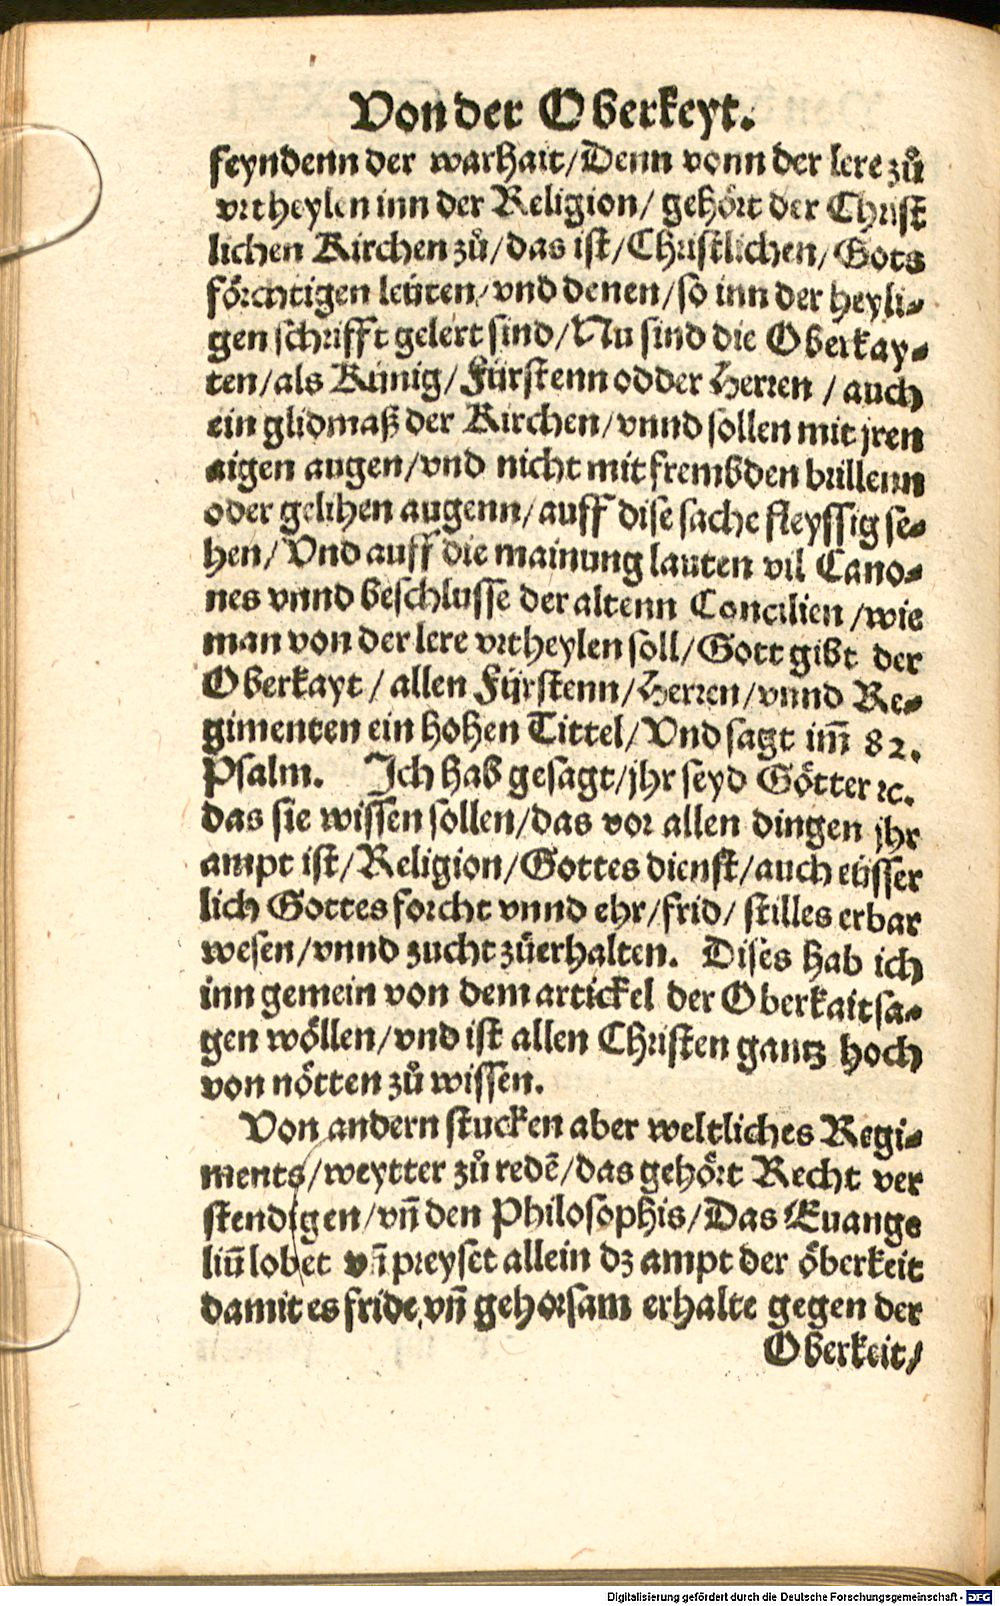 Von der Oberkeyt.
feyndenn der warhait/Denn vonn der lere zů
vrtheylen inn der Religion/ gehört der Christ
lichen Kirchen zů/das ist/Christlichen/Gots
förchtigen leüten/vnd denen/so inn der heyli-
gen schrifft gelert sind/Nu sind die Oberkay-
ten/als Künig/Fürstenn odder Herren /auch
ein glidmaß der Kirchen/vnnd sollen mit jren
aigen augen/vnd nicht mit frembden brillenn
oder gelihen augenn/auff dise sache fleyssig se-
hen/Vnd auff die mainung lauten vil Cano-
nes vnnd beschlusse der altenn Concilien /wie
man von der lere vrtheylen soll/Gott gibt der
Oberkayt / allen Fürstenn/Herren/vnnd Re-
gimenten ein hohen Tittel/Vnd sagt im̃ 82.
Psalm. Jch hab gesagt/jhr seyd Götter ꝛc.
das sie wissen sollen/das vor allen dingen jhr
ampt ist/Religion/Gottes dienst/auch eüsser
lich Gottes forcht vnnd ehr/frid/ stilles erbar
wesen/vnnd zucht zůerhalten. Dises hab ich
inn gemein von dem artickel der Oberkait sa-
gen wöllen/vnd ist allen Christen gantz hoch
von nötten zů wissen.
Von andern stucken aber weltliches Regi-
ments/weytter zů redẽ/das gehört Recht ver
stendigen/vñ den Philosophis/Das Euange
liũ lobet vñ preyset allein dz ampt der öberkeit
damit es fride vñ gehorsam erhalte gegen der
Oberkeit/
Digitalisierung gefördert durch die Deutsche Forschungsgemeinschaft - DFG